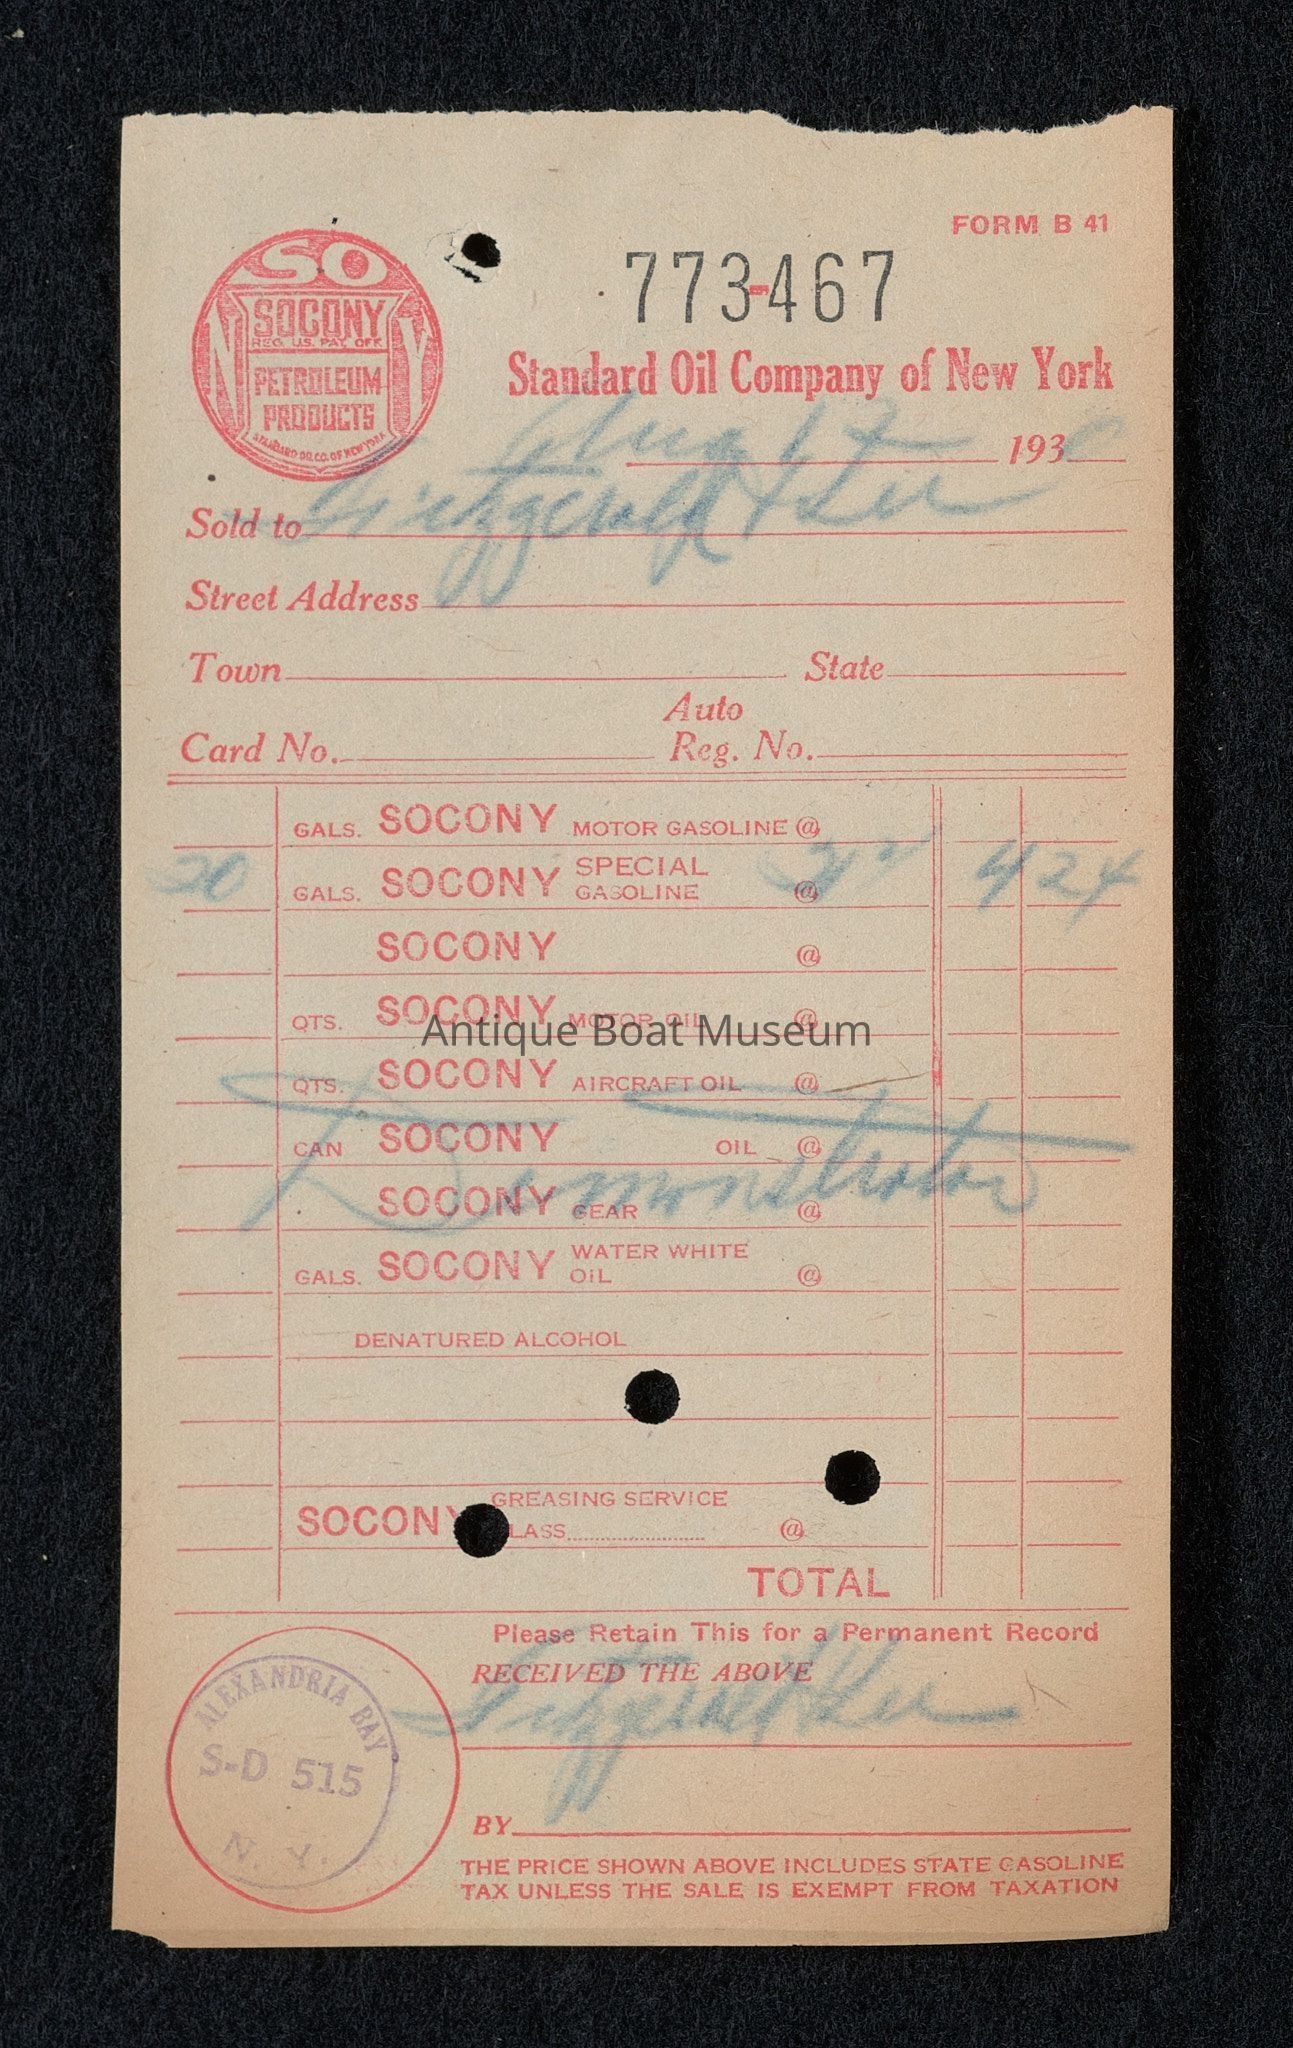 FORM B 41
SO
NY
SOCONY
REG. U.S. PAT. OFF.
PETROLEUM
PRODUCTS
STANDARD OIL CO. OF NEW YORK
773-467
Standard Oil Company of New York
Aug 17 1930
Sold to Fitzgerald & Lee
Street Address
Town State
Auto
Card No. Reg. No.
GALS. SOCONY MOTOR GASOLINE @
20 GALS. SOCONY SPECIAL GASOLINE @ 4 24
SOCONY @
QTS. SOCONY MOTOR OIL @
Antique Boat Museum
QTS. SOCONY AIRCRAFT OIL @
CAN SOCONY OIL @
Demonstrator
SOCONY GEAR @
GALS. SOCONY WATER WHITE OIL @
DENATURED ALCOHOL
SOCONY GREASING SERVICE
LASS @
TOTAL
Please Retain This for a Permanent Record
RECEIVED THE ABOVE
Fitzgerald & Lee
ALEXANDRIA BAY
S-D 515
N. Y.
BY
THE PRICE SHOWN ABOVE INCLUDES STATE GASOLINE
TAX UNLESS THE SALE IS EXEMPT FROM TAXATION